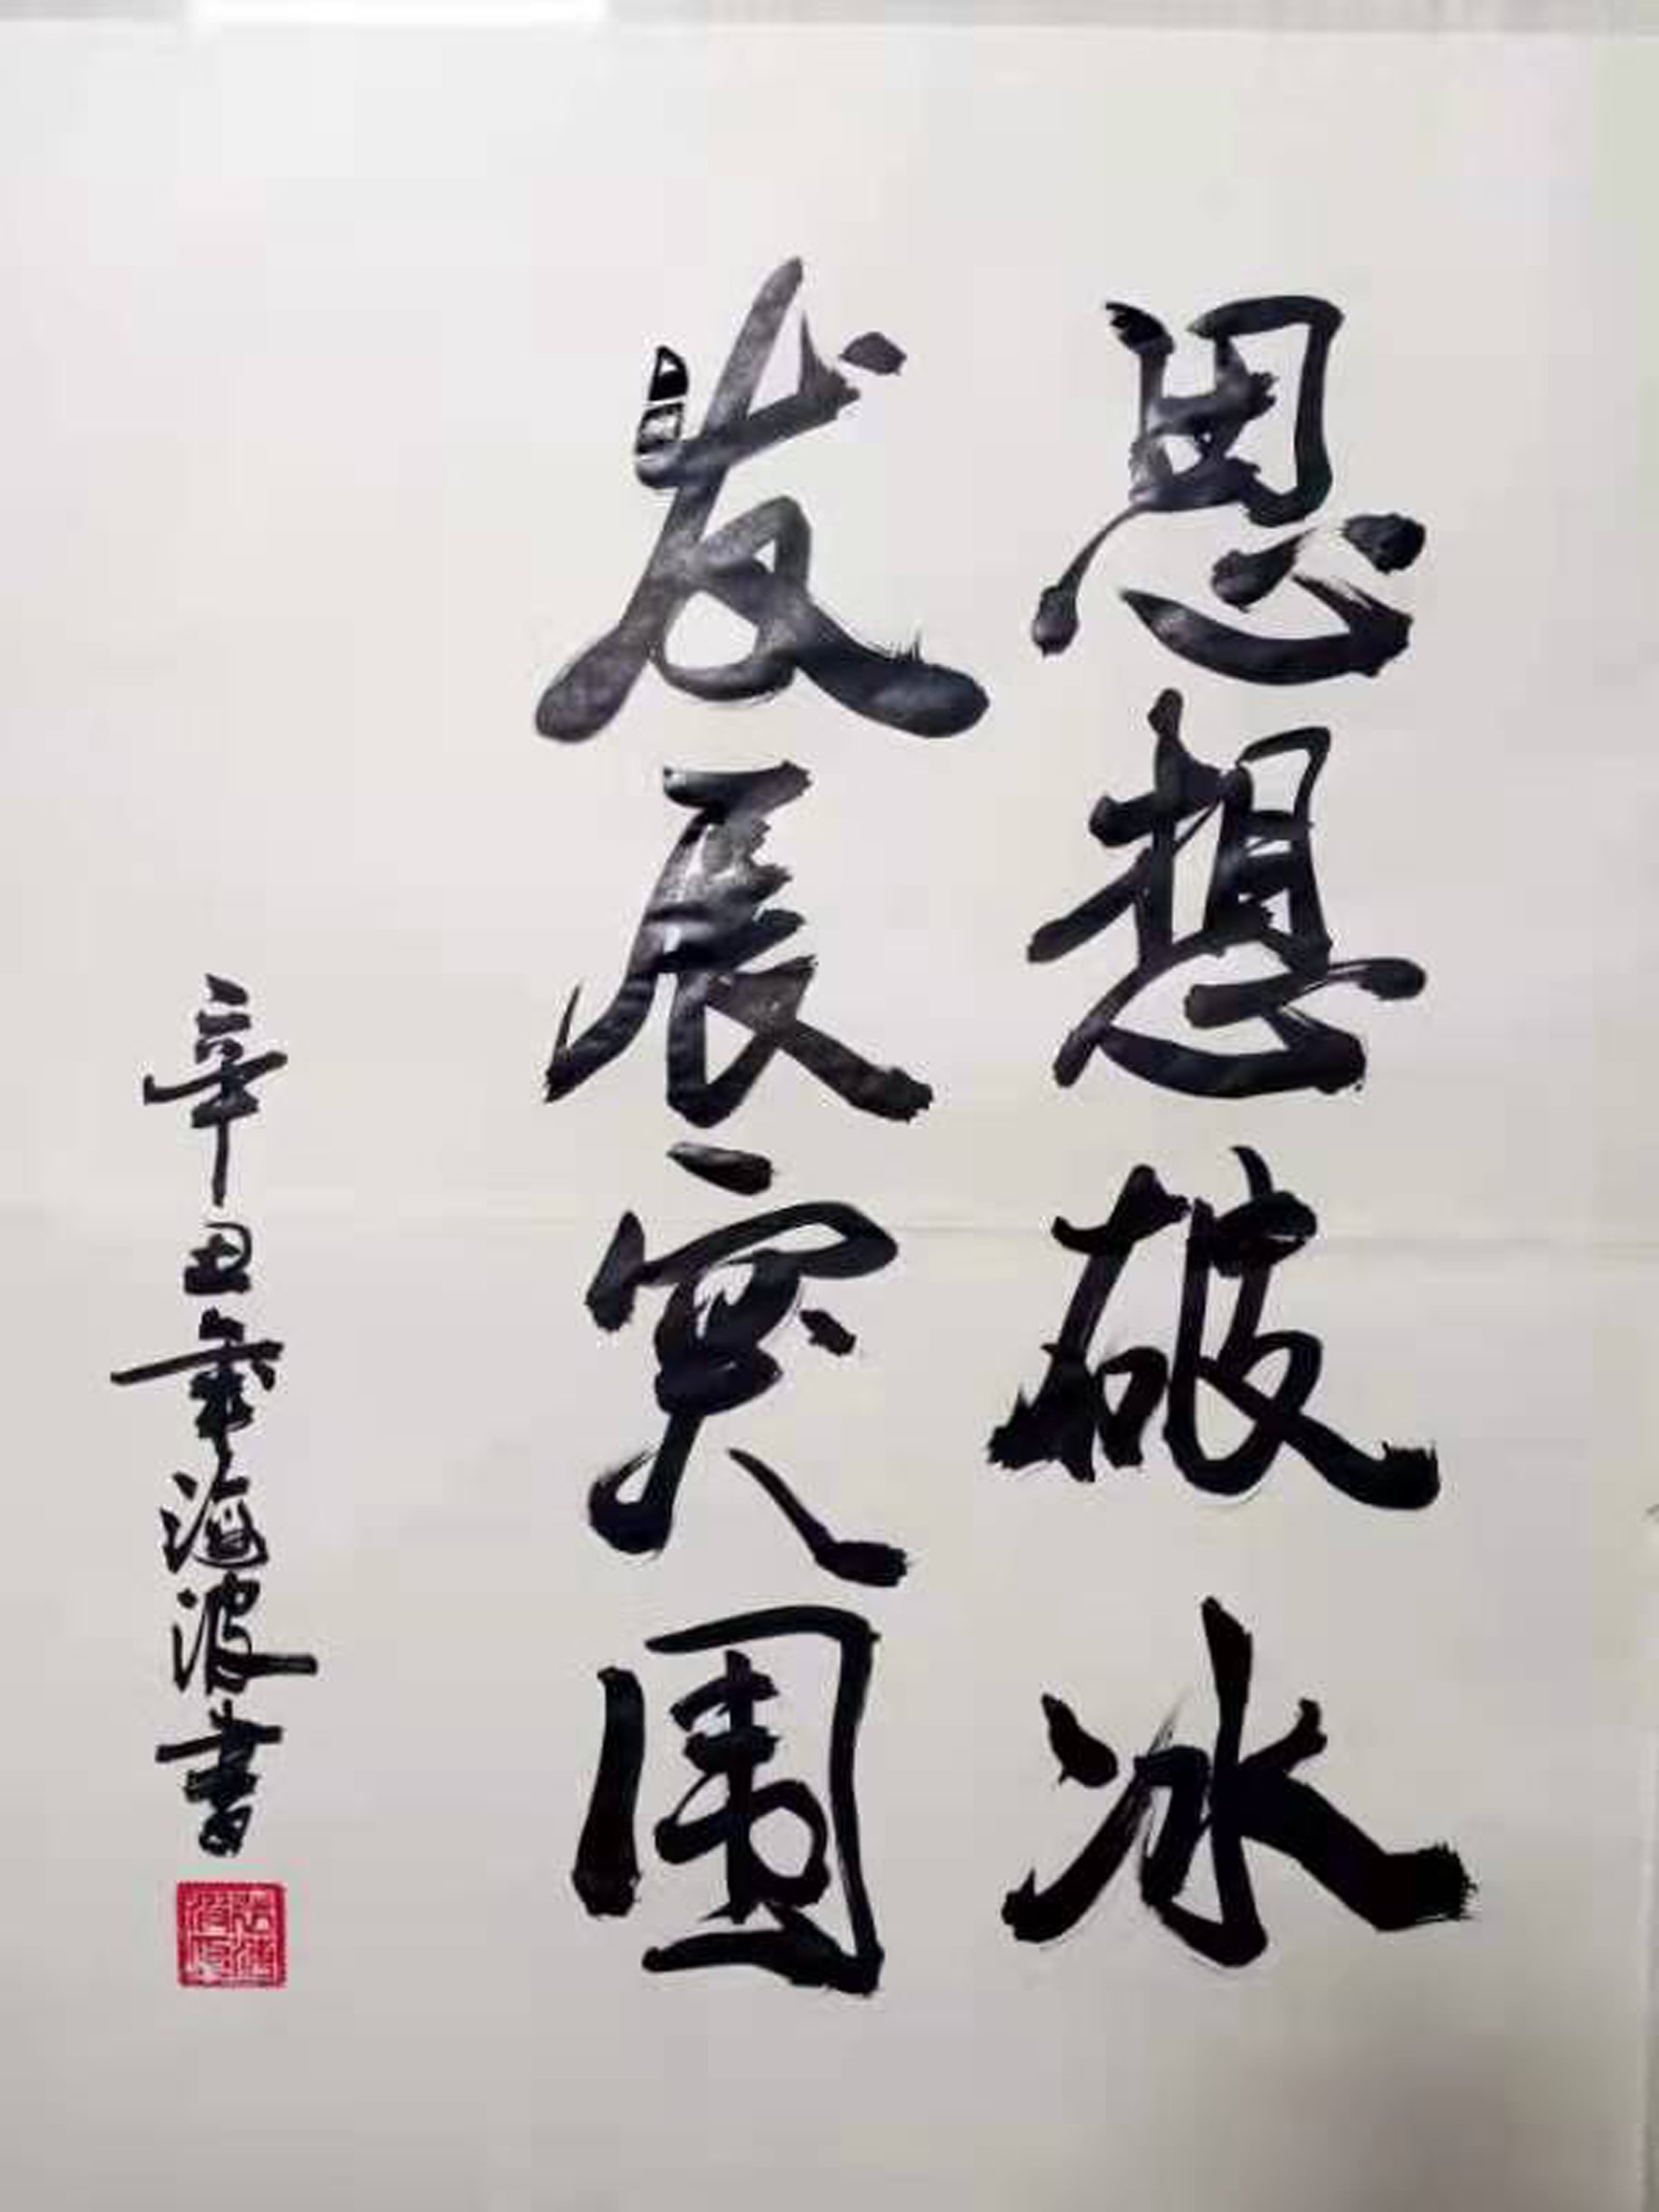 思想破冰
发展突围
辛丑年海波书